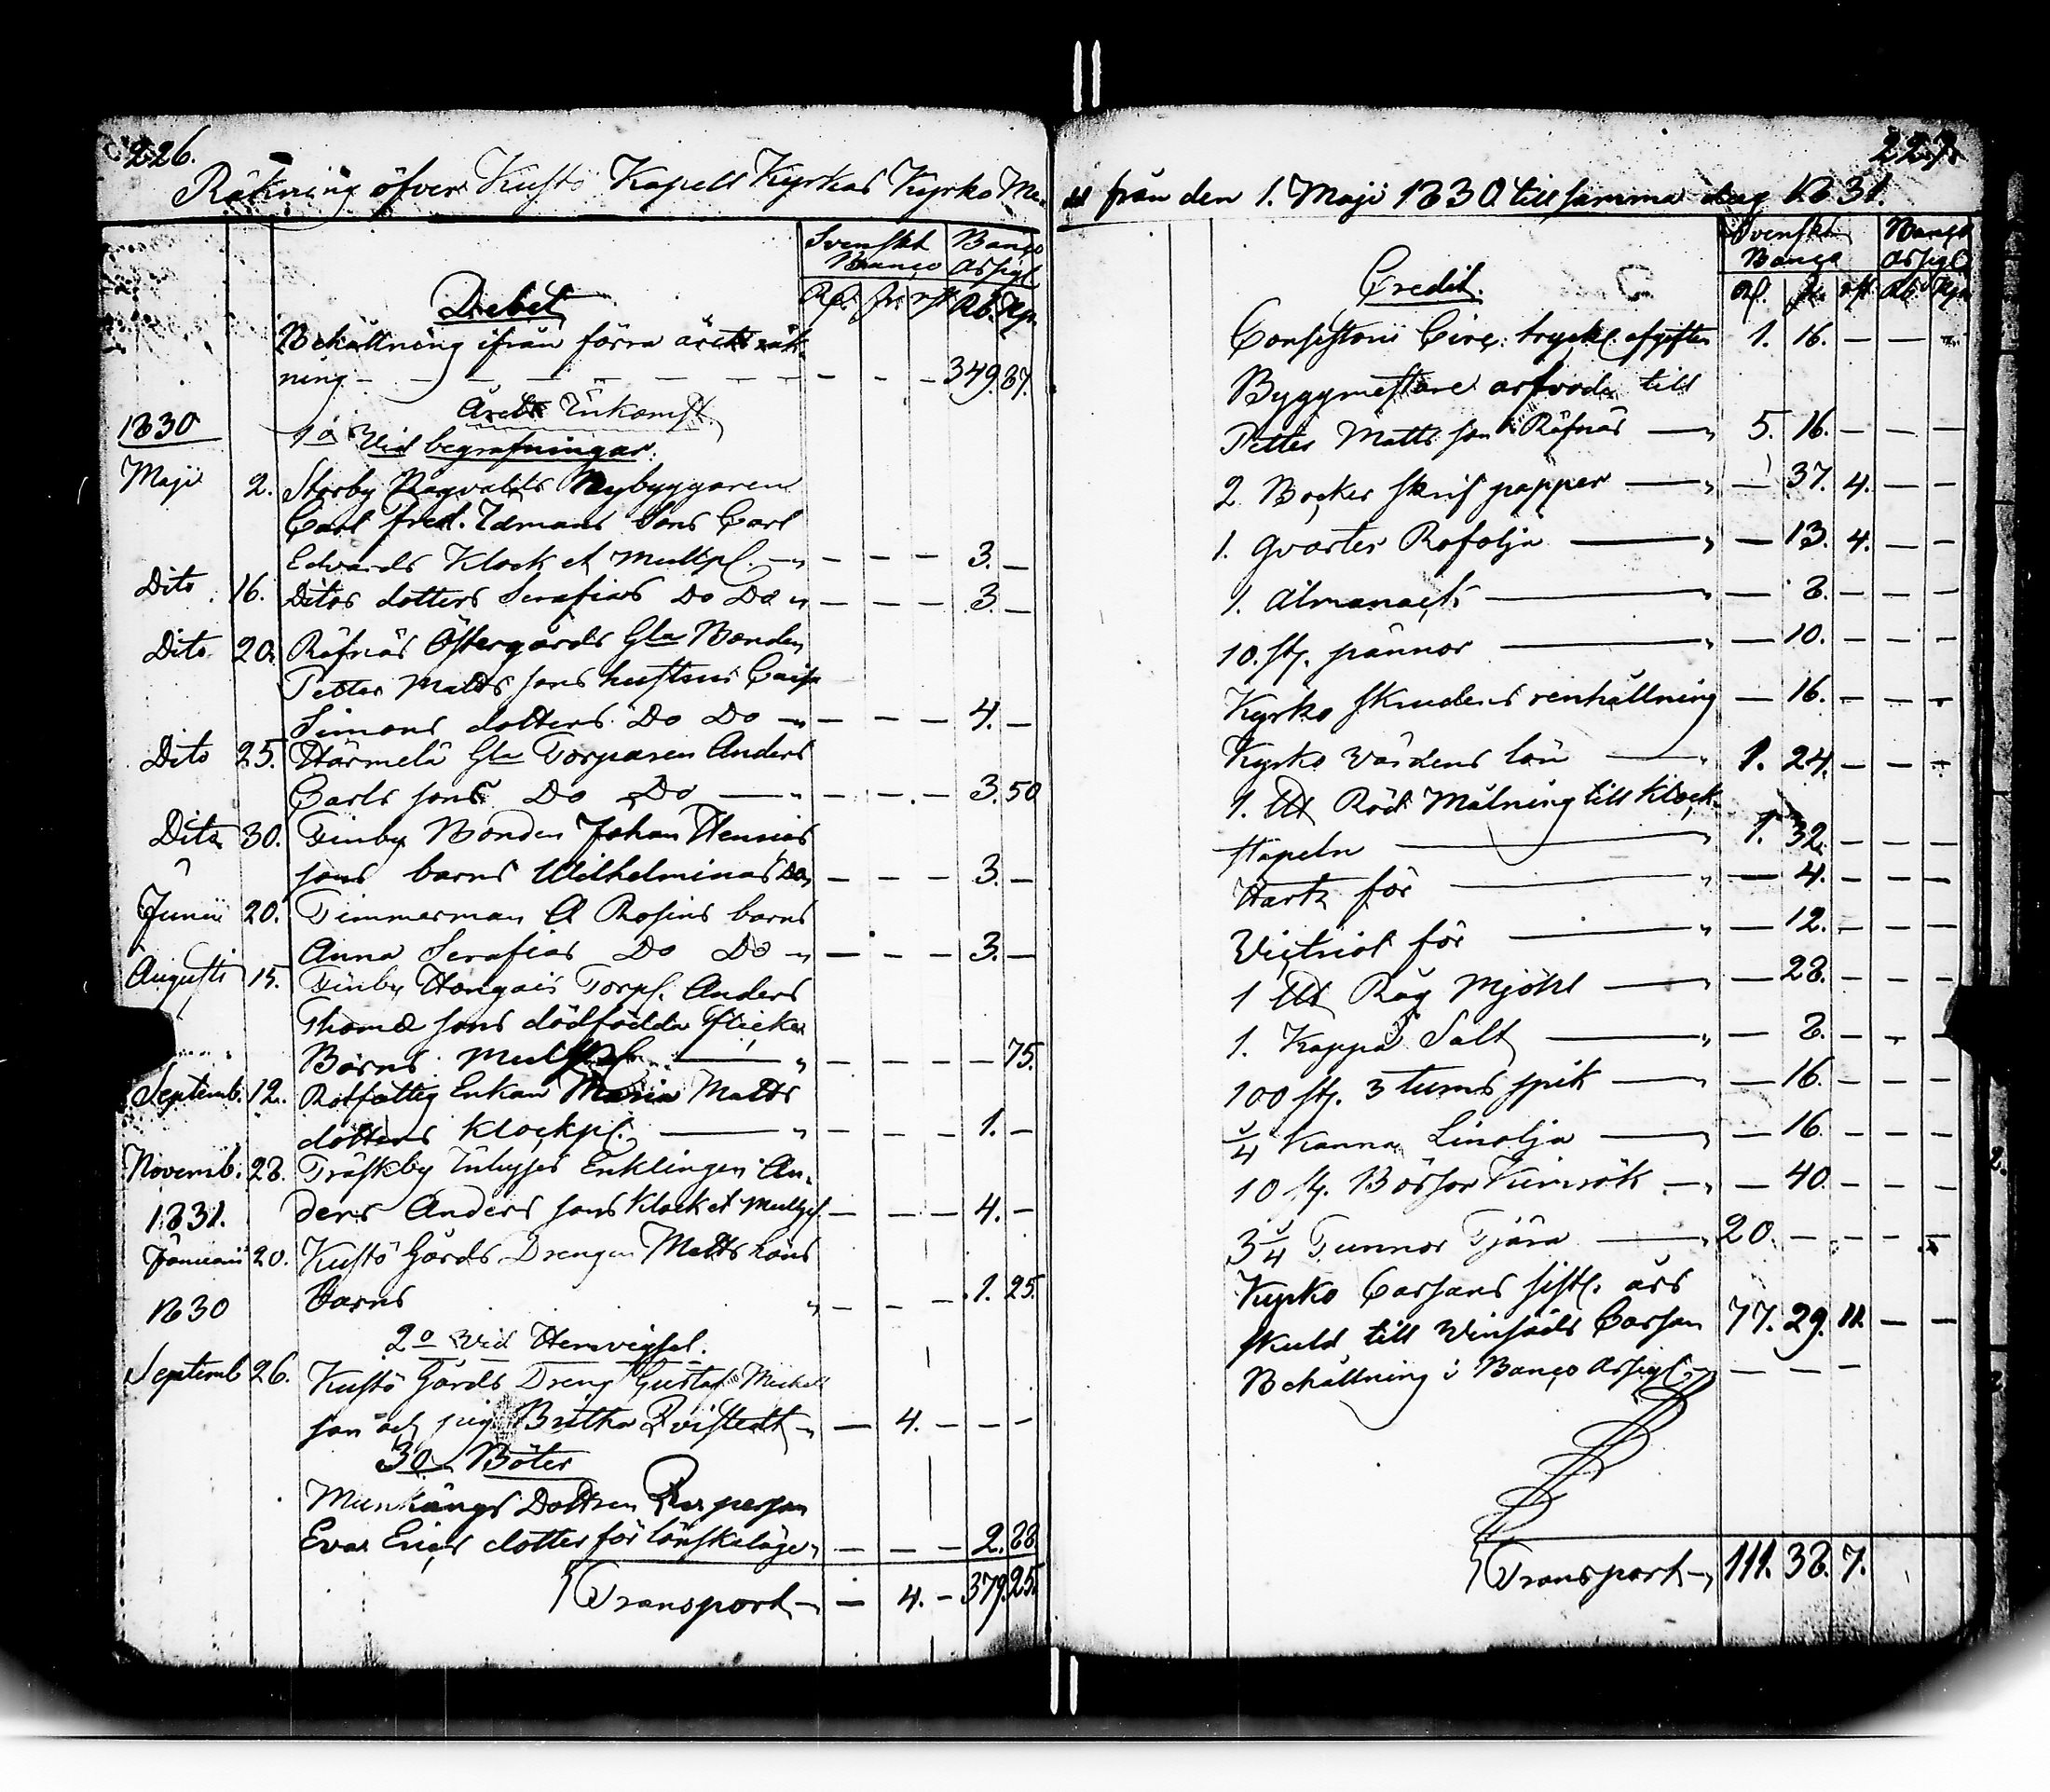 226.
Räkning öfver Kustö Kapells Kyrkas Kyrko Me-
Svenskt Banco
Banco Assigt
Rd. sk. rst. Rb. Kp.
Debet
Behållning ifrån förra årets räk-
ning - - - - - - - - - 349. 87.
Årets Inkomst.
1830
1o Vid begrafningar.
Maji 2. Storby Ragvalds Nybyggaren
Carl Fred. Idmans Sons Carl
Edvards Klock et Mullpl. - - - 3. -
Dito 16. Ditos dotters Serafias Do Do - - - 3. -
Dito 20. Räfnäs Östergårds Gla Bonden
Petter Matts sons hustrus Caisa
Simons dotters Do Do - - - 4. -
Dito 25. Härmelä Gla Torparen Anders
Carls sons Do Do - - - 3. 50
Dito 30. Finby Bonden Johan Henrics
sons barns Wilhelminas Do - - - 3. -
Junii 20. Timmerman A Rosins barns
Anna Serafias Do Do - - - 3. -
Augusti 15. Finby Torp. Anders
Thomæ sons dödfödda flicke
Barns Mullpl. - - - - 75.
Septemb. 12. Rotfattig Enkan Maria Matts
dotters Klockpl. - - - 1. -
Novemb. 28. Träskby Enklingen An-
ders Anders sons Klock et Mullpl. - - - 4. -
1831.
Januarii 20. Kustö Gårds Drengen Matts
Barns - - - 1. 25.
1830
2o Vid Hemvigsel.
Septemb 26. Kustö Gårds Dreng Gustaf Michels
son och pig. Britha Qvistedt - 4. - - -
3o Böter
Munkängs Dottren Qvs person
Eva Erics dotter för lönskeläge - - - 2. 88
Transport - 4. - 379. 25.
227.
del från den 1. Maji 1830 till samma dag 1831.
Svenskt Banco
Banco Assigt
Rd. sk. rst. Rb. Kp.
Credit.
Consistorii Circ. tryckl. afgiften 1. 16. - - -
Byggmestare arfvode till
Petter Matts son Räfnäs 5. 16. - - -
2 Böcker skrif papper - 37. 4. - -
1. qvarter Rofolja - 13. 4. - -
1. Almanach - 8. - - -
10. st. pännor - 10. - - -
Kyrko skrudens renhållning - 16. - - -
Kyrko Värdens lön 1. 24. - - -
1. Röd Målning till Klock-
stapeln 1. 32. - - -
Hartz för - 4. - - -
Victriol för - 12. - - -
1 Råg Mjöhl - 28. - - -
1. Kappa Salt - 8. - - -
100 st. 3 tums spik - 16. - - -
1/4 Kanna Linolja - 16. - - -
10 st. Börsor Kimrök - 40. - - -
3 1/4 Tunnor Tjära 20. - - - -
Kyrko Cassans sistl. års
skuld till Winsäds Cassan 77. 29. 11. - -
Behållning i Banco Assigt - - -
Transport 111. 38. 7.